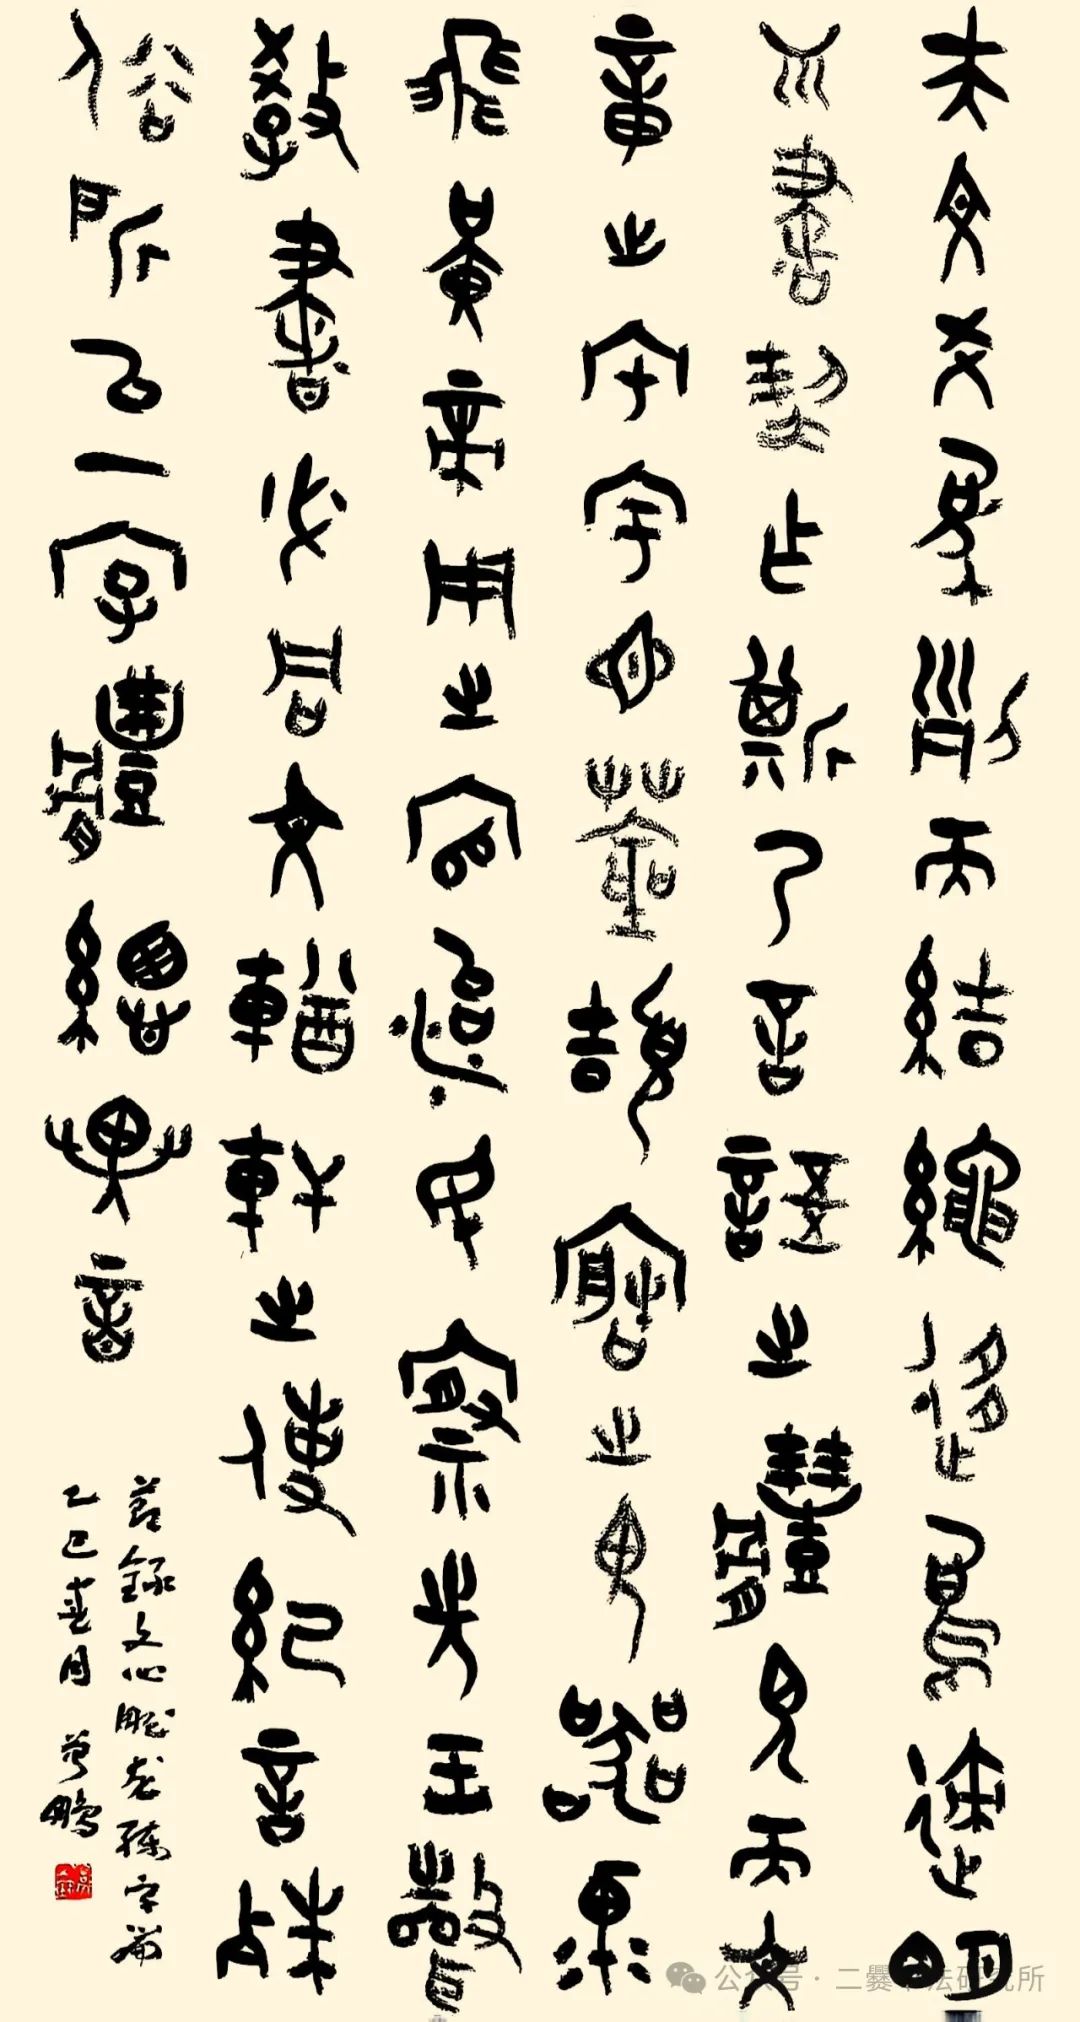 夫文爻象列而結繩移鳥迹明
而書契作斯乃言語之體皃而文
章之宅宇也蒼頡造之鬼哭粟
飛黃帝用之官治民察先王聲
教書必同文輶軒之使紀言殊
俗所以一字體緫異音
節錄文心雕龙練字篇
乙巳春月 曾鵬
公众号·二爨书法研究所